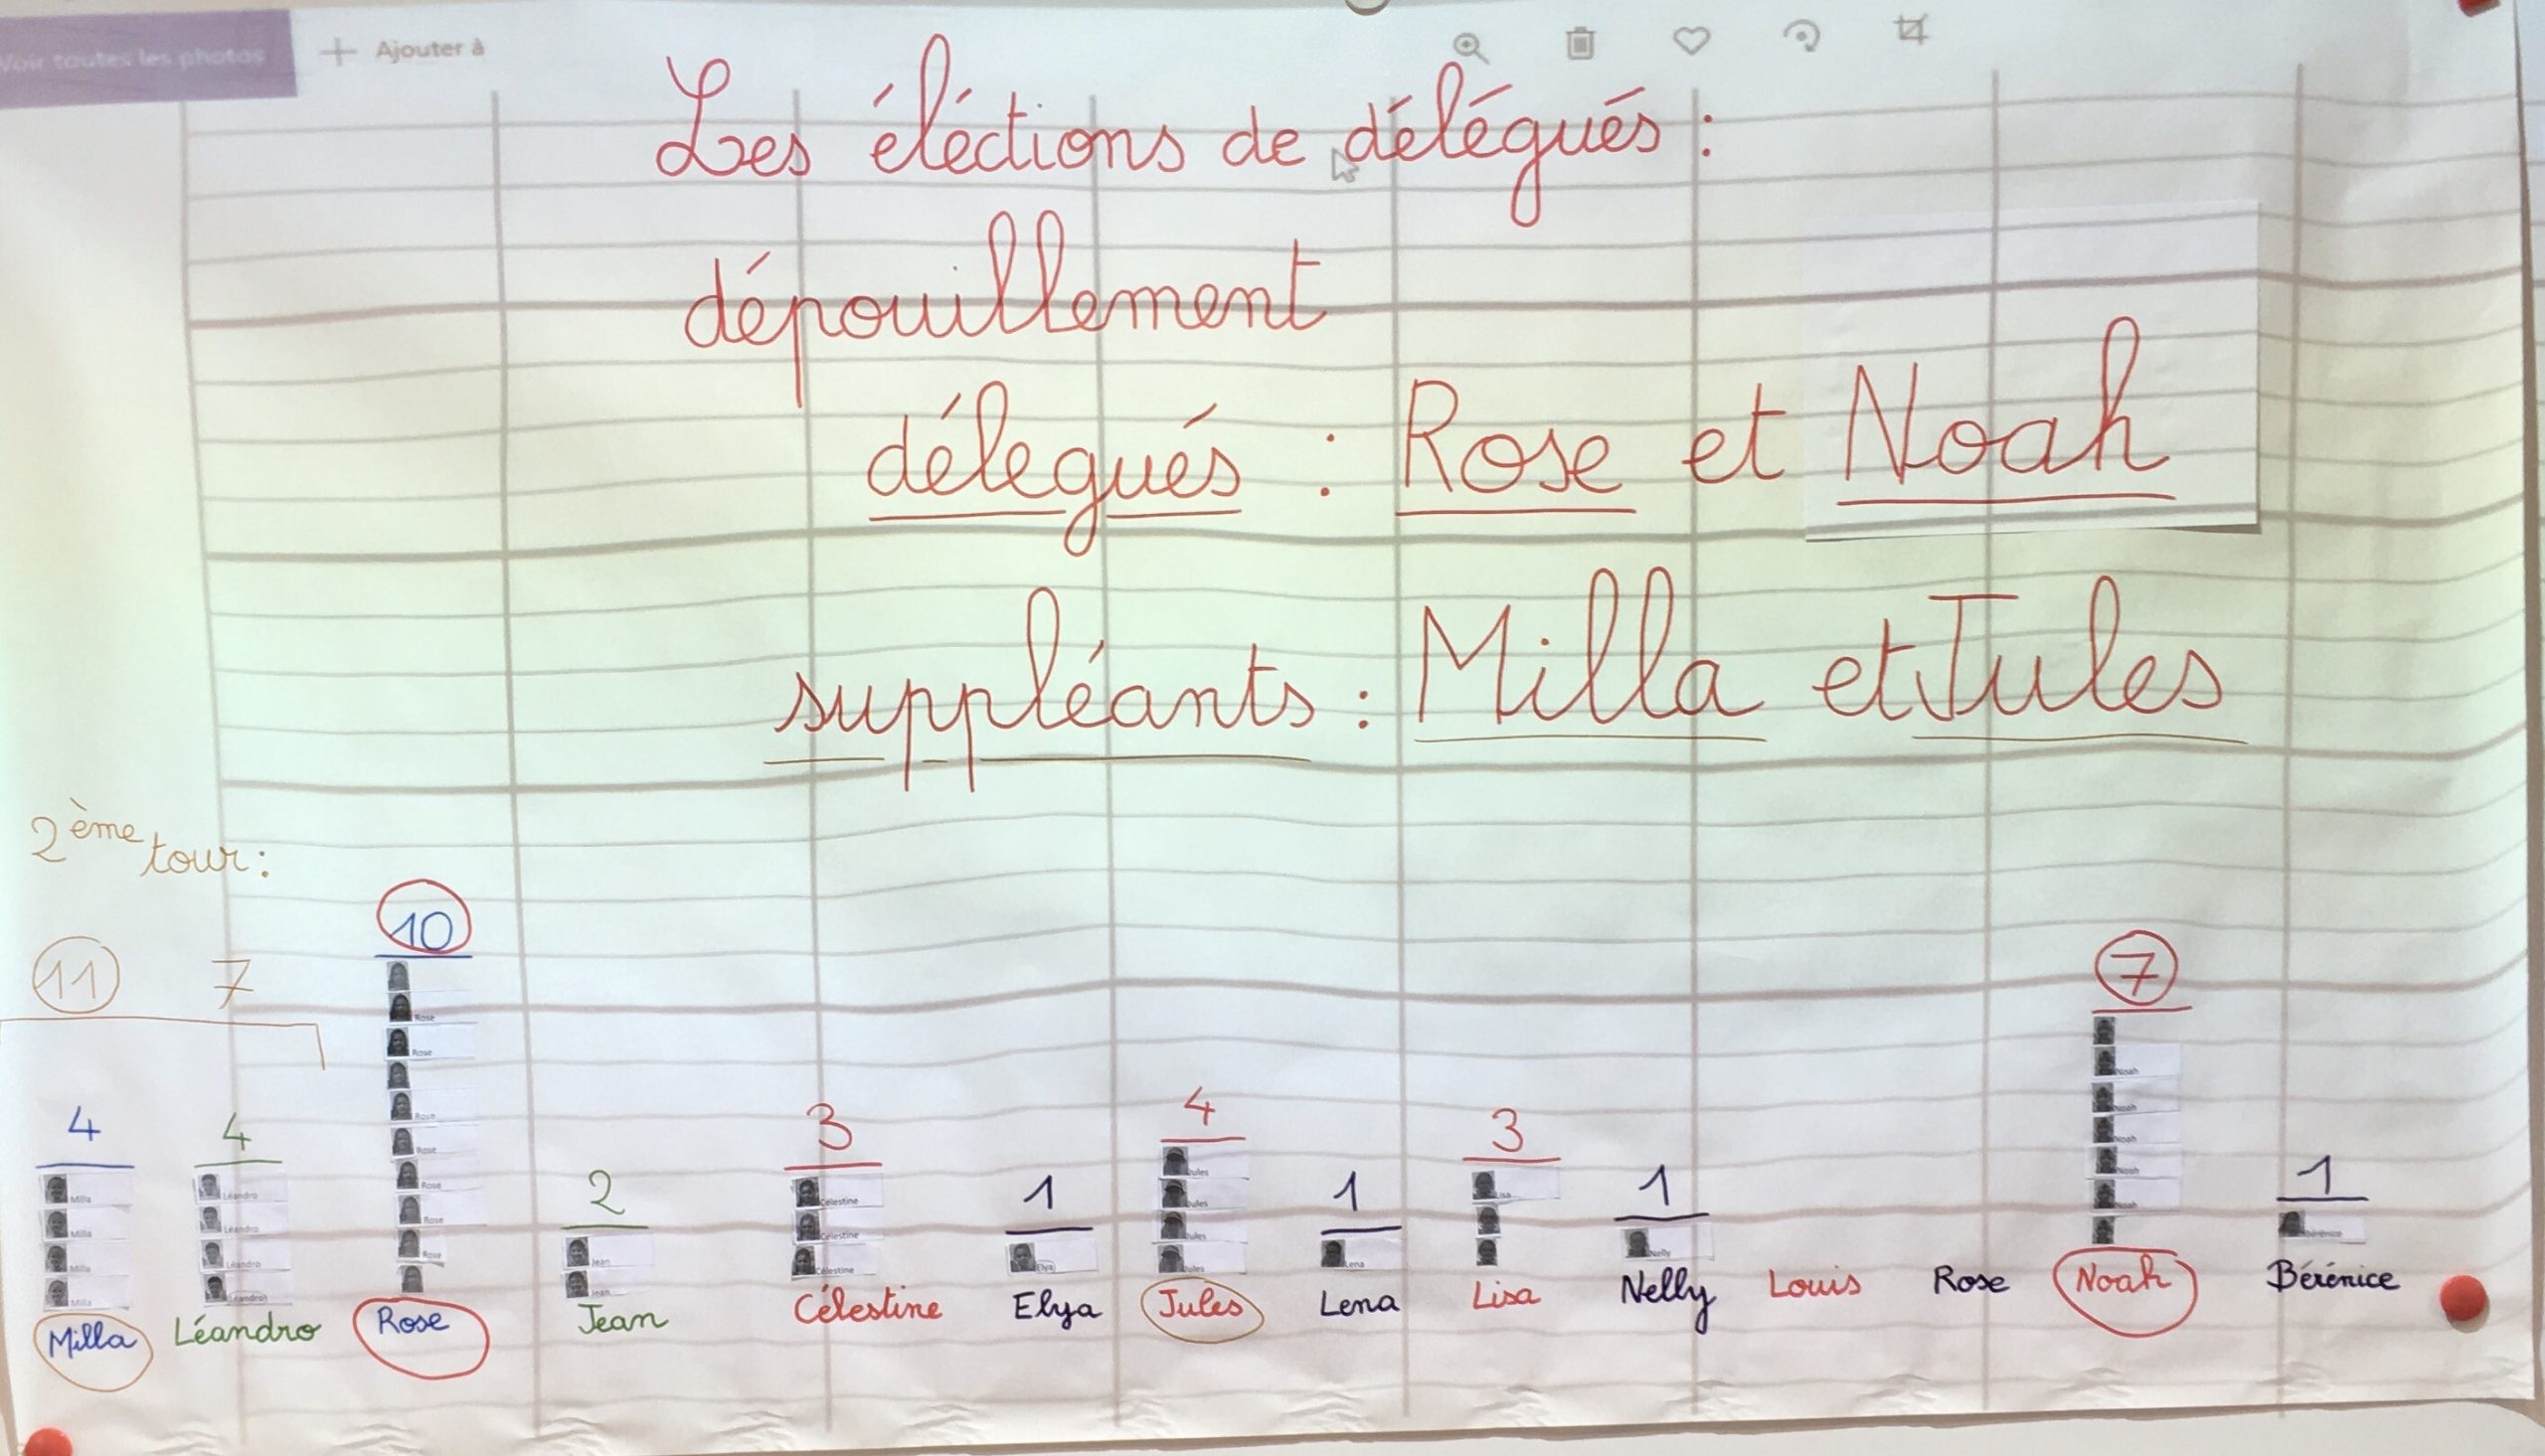 Voir toutes les photos
Ajouter à
Les éléctions de délégués :
dépouillement
délegués : Rose et Noah
suppléants : Milla et Jules
2ème tour :
11 7
10
7
4 4 2 3 1 4 1 3 1 1
Milla
Milla
Milla
Milla
Léandro
Léandro
Léandro
Léandro
Rose
Rose
Rose
Rose
Rose
Rose
Rose
Jean
Jean
Célestine
Célestine
Célestine
Elya
Jules
Jules
Jules
Jules
Lena
Lisa
Nelly
Noah
Noah
Noah
Noah
Noah
Bérénice
Milla Léandro Rose Jean Célestine Elya Jules Lena Lisa Nelly Louis Rose Noah Bérénice